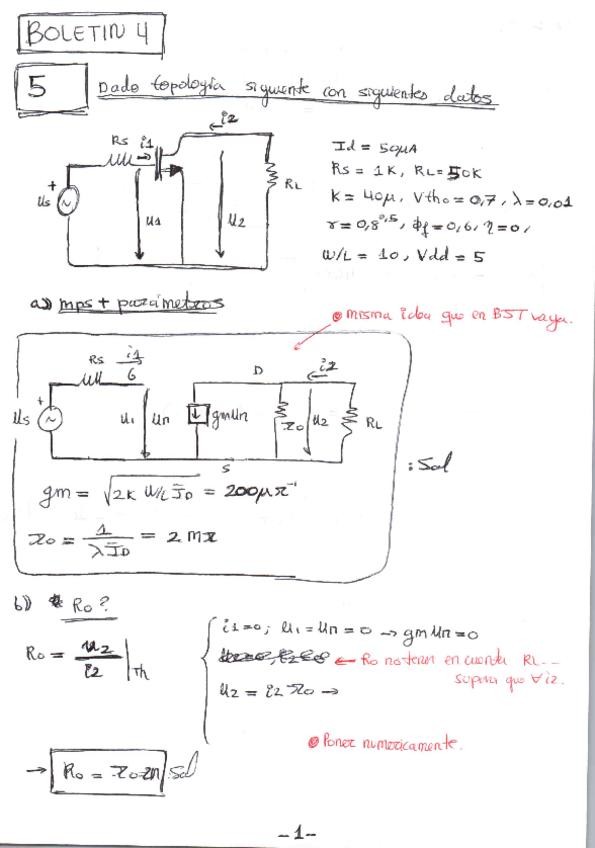 BOLETIN 4
5 Dado topología siguiente con siguientes datos
Rs i1 i2
+ us u1 u2 RL
Id = 50μA
Rs = 1K, RL = 50K
K = 40μ, Vtho = 0,7, λ = 0,01
r = 0,8^0,5, ϕf = 0,6, η = 0,
W/L = 10, Vdd = 5
a) mps + parámetros
misma idea que en BJT vaya.
Rs i1 G D i2
+ us u1 uπ gmuπ ro u2 RL
S
: Sol
gm = √(2K W/L ID) = 200μΩ⁻¹
ro = 1/(λ ID) = 2MΩ
b) Ro?
i1=0; u1 = uπ = 0 → gmuπ = 0
Ro = u2/i2 |Th
← Ro no tener en cuenta RL --
supera que ∀ i2.
u2 = i2 ro →
Poner numericamente.
→ Ro = ro = 2M Sol
-1-